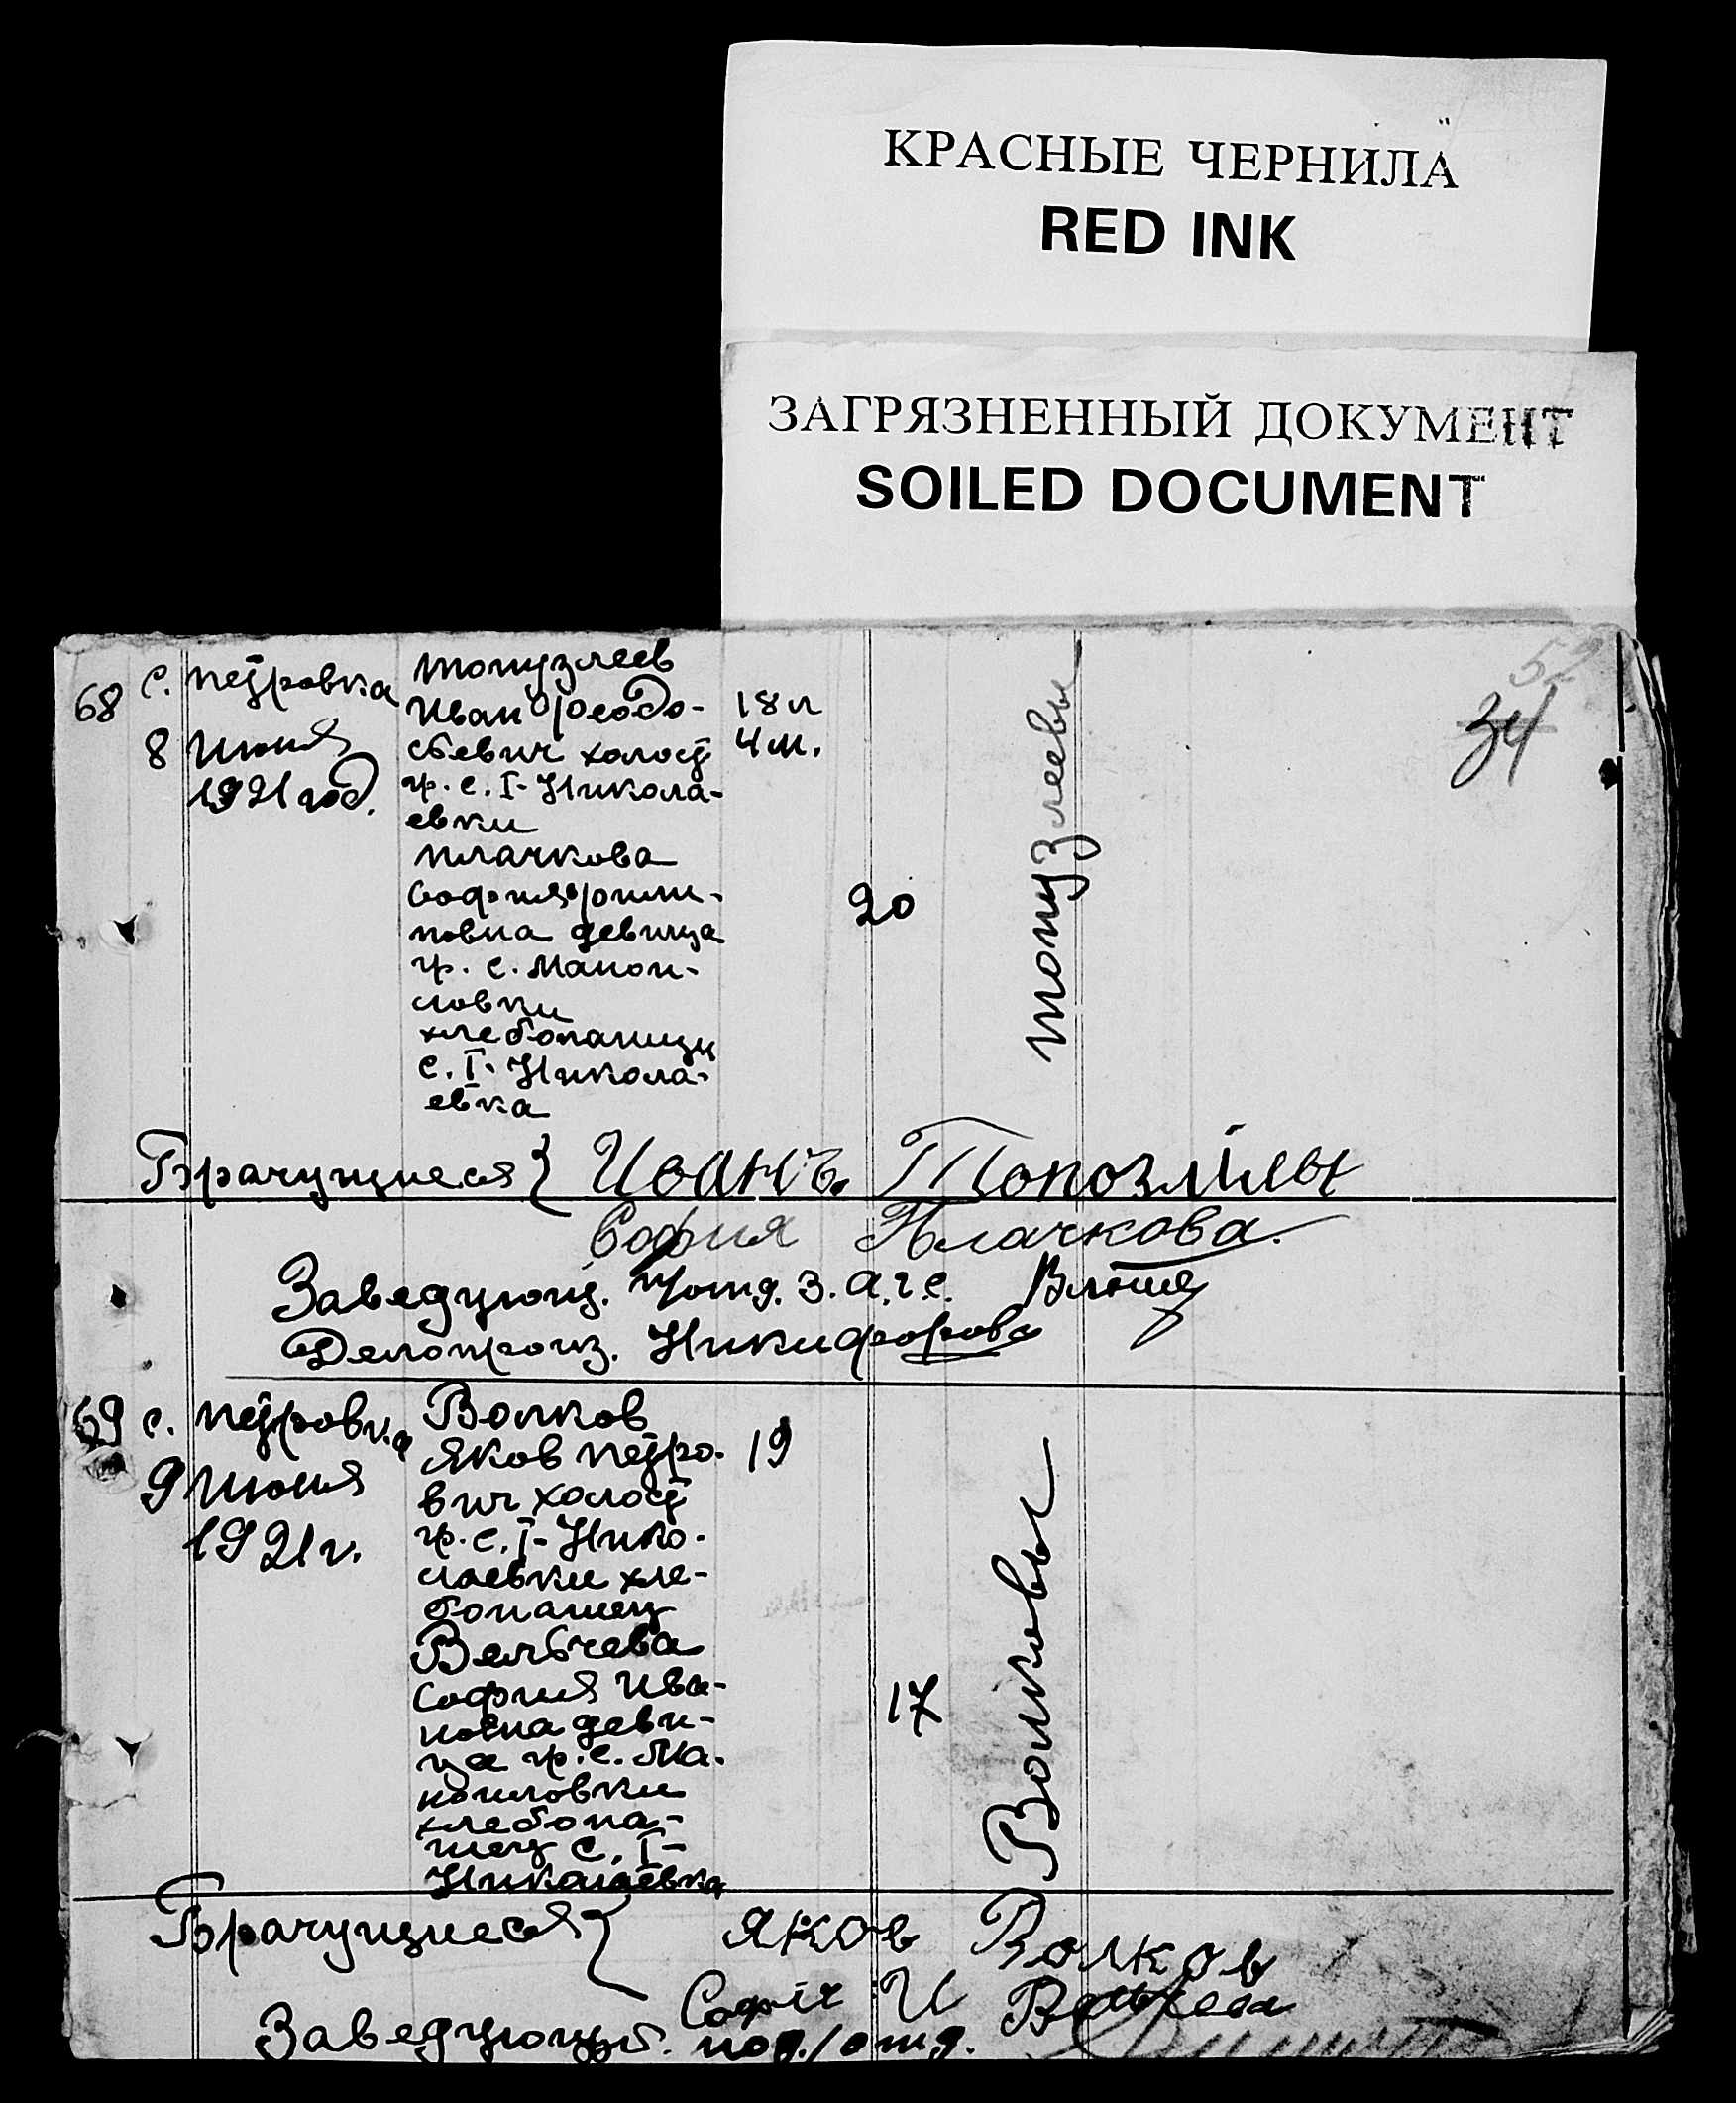 КРАСНЫЕ ЧЕРНИЛА
RED INK
ЗАГРЯЗНЕННЫЙ ДОКУМЕНТ
SOILED DOCUMENT
52
34
68
с. Петровка
8 июня
1921 год.
Топузлеев
Иван Феодо-
сьевич холост
гр. с. I-Никола-
евки
Плачкова
София Фили-
повна девица
гр. с. Маной-
ловки
хлебопашцы
с. I-Никола-
евка
18 л
4 м.
20
Топузлеевы
Брачущиеся } Иванъ
София Плачкова.
Заведующ. п/отд. З.А.Г.С.
Делопроиз. Никифорова
69
с. Петровка
9 июня
1921 г.
Волков
Яков Петро-
вич холост
гр. с. I-Нико-
лаевки хле-
бопашец
Вельчева
София Ива-
новна деви-
ца гр. с. Ма-
нойловки
хлебопа-
шец с. I-
Николаевка
19
17
Волковы
Брачущиеся { Яков Волков
Софія И Вельчева
Заведующий. под/отд.